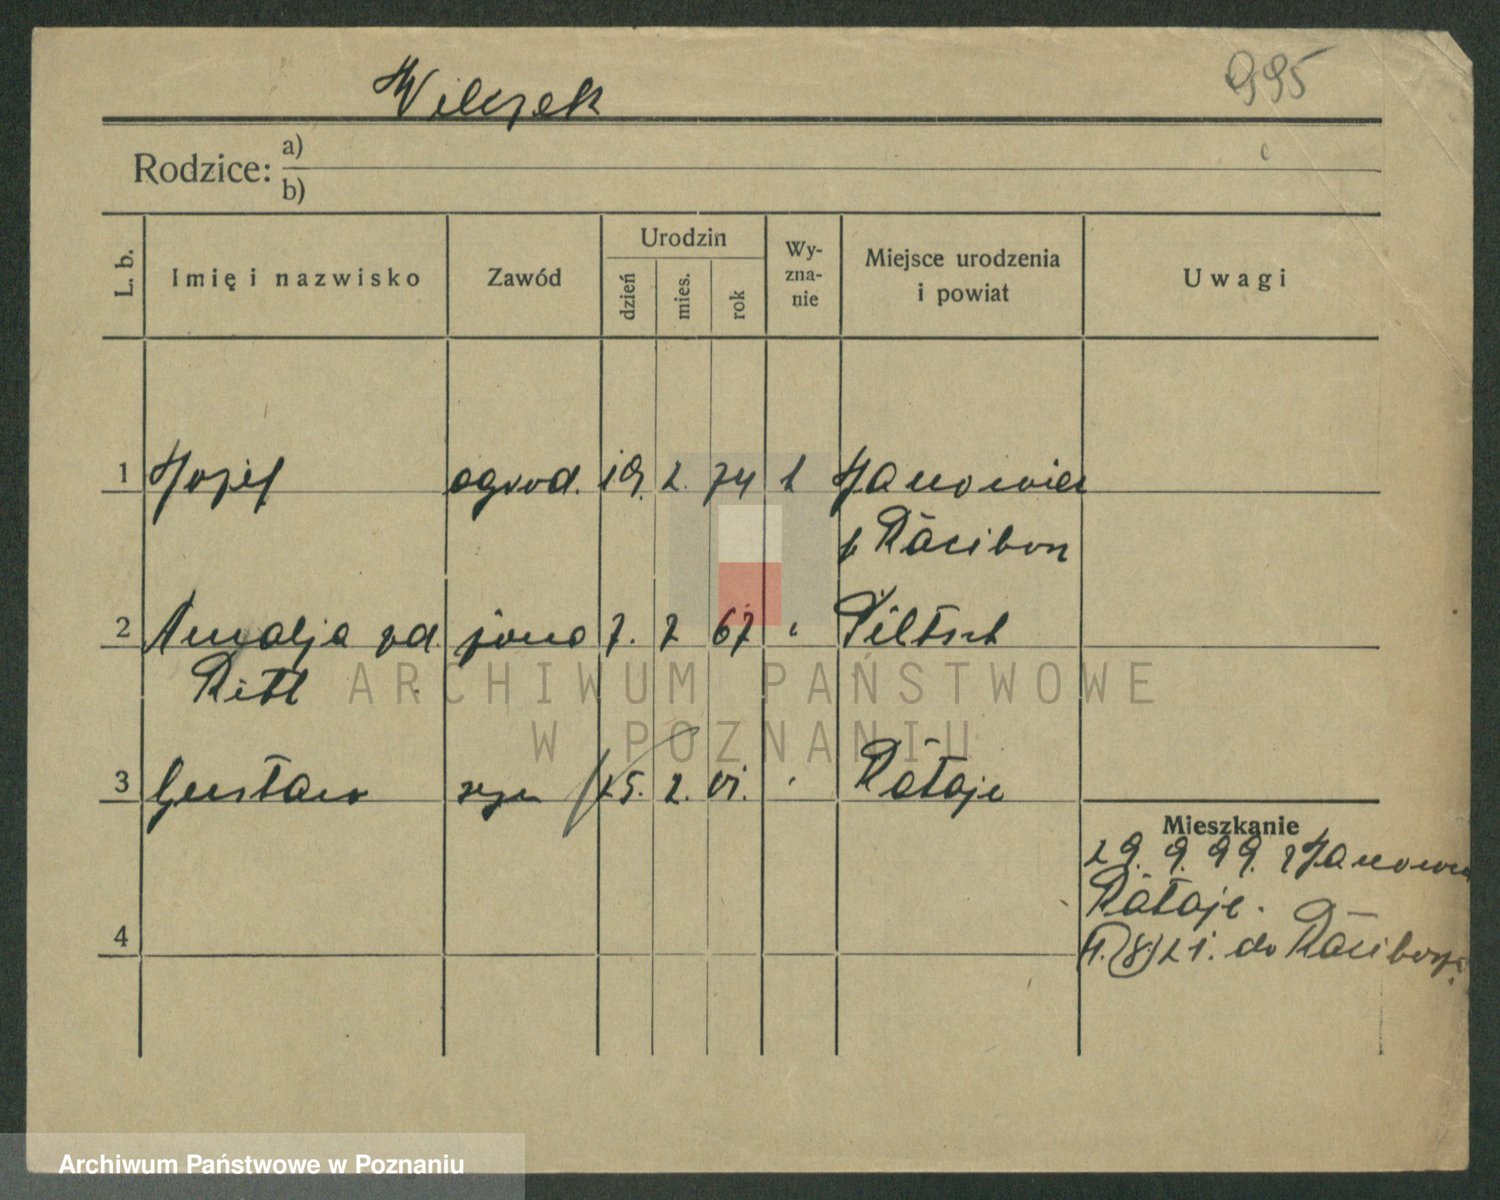 995
Wilczek
Rodzice: a)
b)
L. b.
Imię i nazwisko
Zawód
Urodzin
dzień
mies.
rok
Wy-
zna-
nie
Miejsce urodzenia
i powiat
Uwagi
1 Józef ogrod. 19. 2. 74 Janowice
p Racibórz
2 Amalja żona 7. 7 67 Piltsch
3 Gustaw syn 25. 2. 01. Rataje
Mieszkanie
29. 9. 99. z
Rataje.
21. do
4
ARCHIWUM PAŃSTWOWE
W POZNANIU
Archiwum Państwowe w Poznaniu